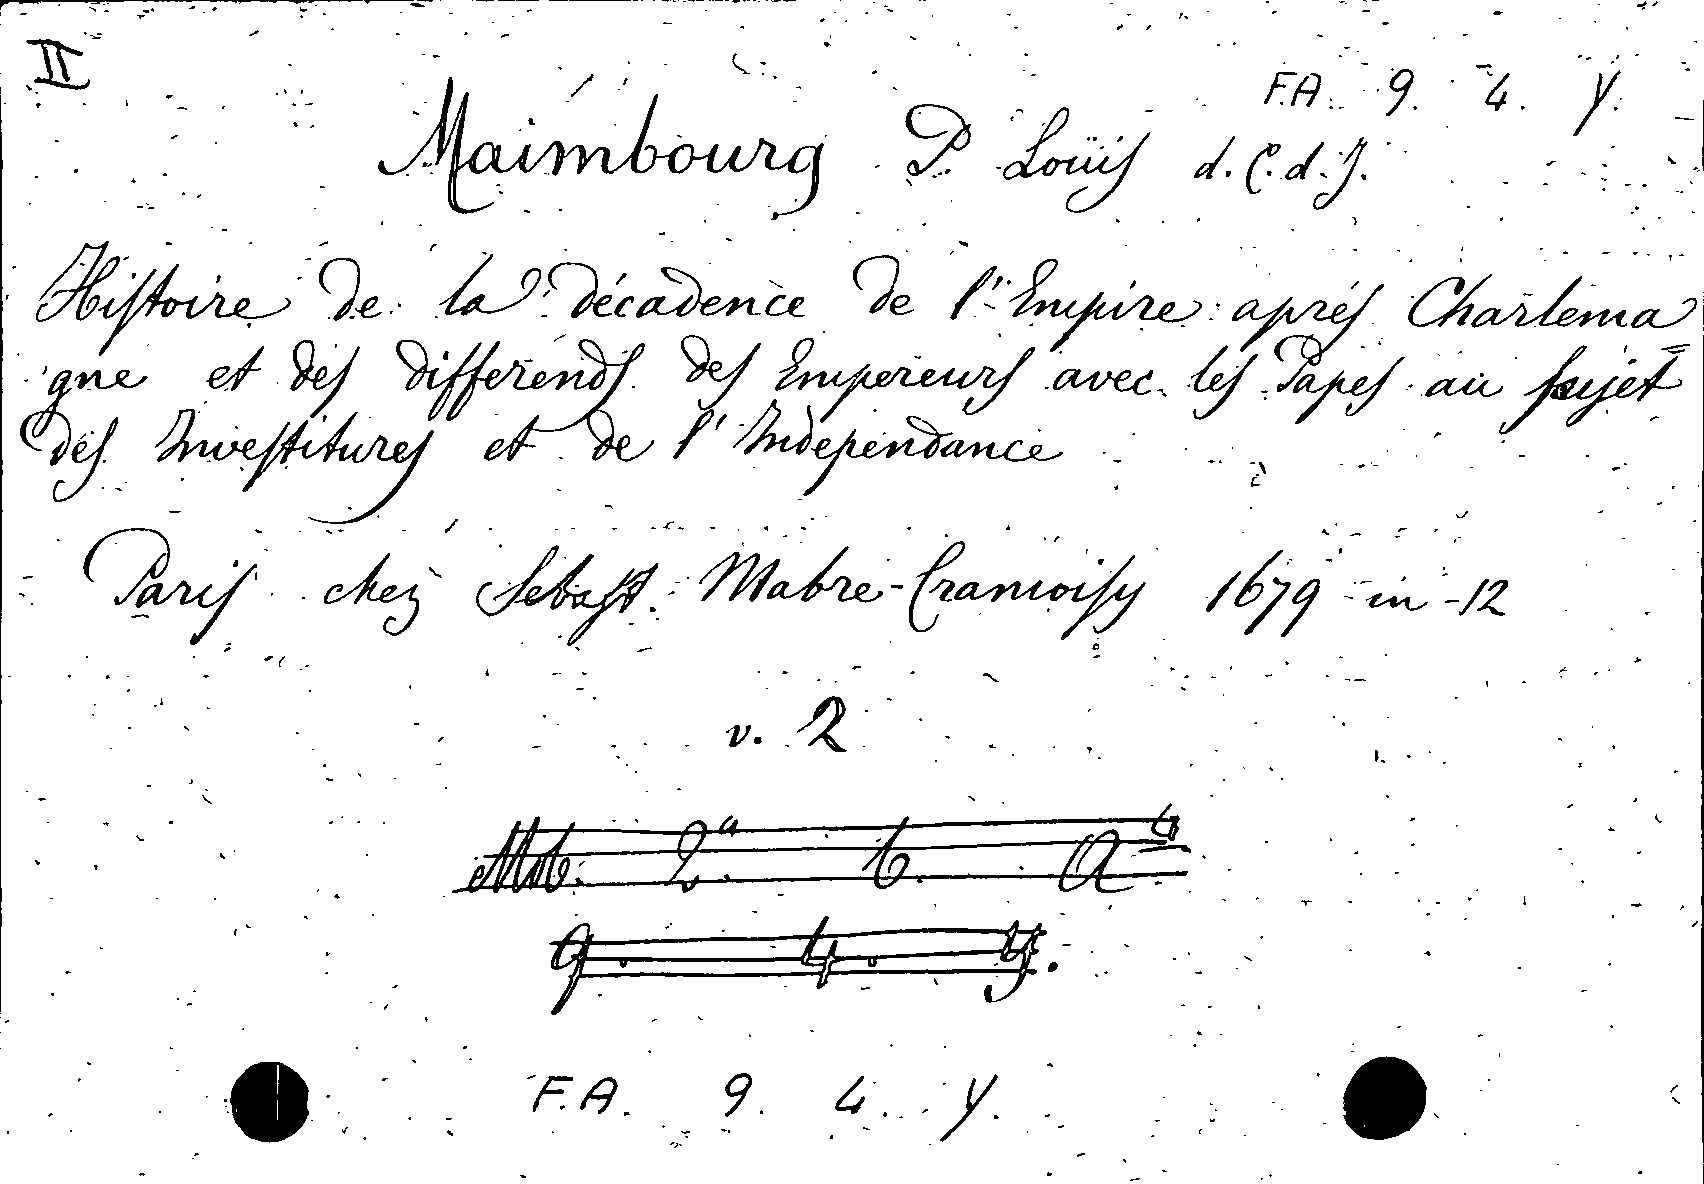 II
F.A. 9. 4. Y.
Maimbourg P. Loüis d. C. d. J.
Histoire de la décadence de l'Empire aprés Charlema
gne et des differends des Empereurs avec les Papes au sujet
des Investitures et de l'Independance
Paris chez Sebast. Mabre-Cramoisy 1679 in-12
v. 2
Mb. 2.a 6. a4
9. 4. y.
F.A. 9. 4. Y.